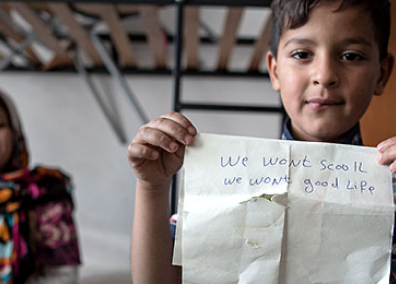 we wont scoolL
we wont good Life